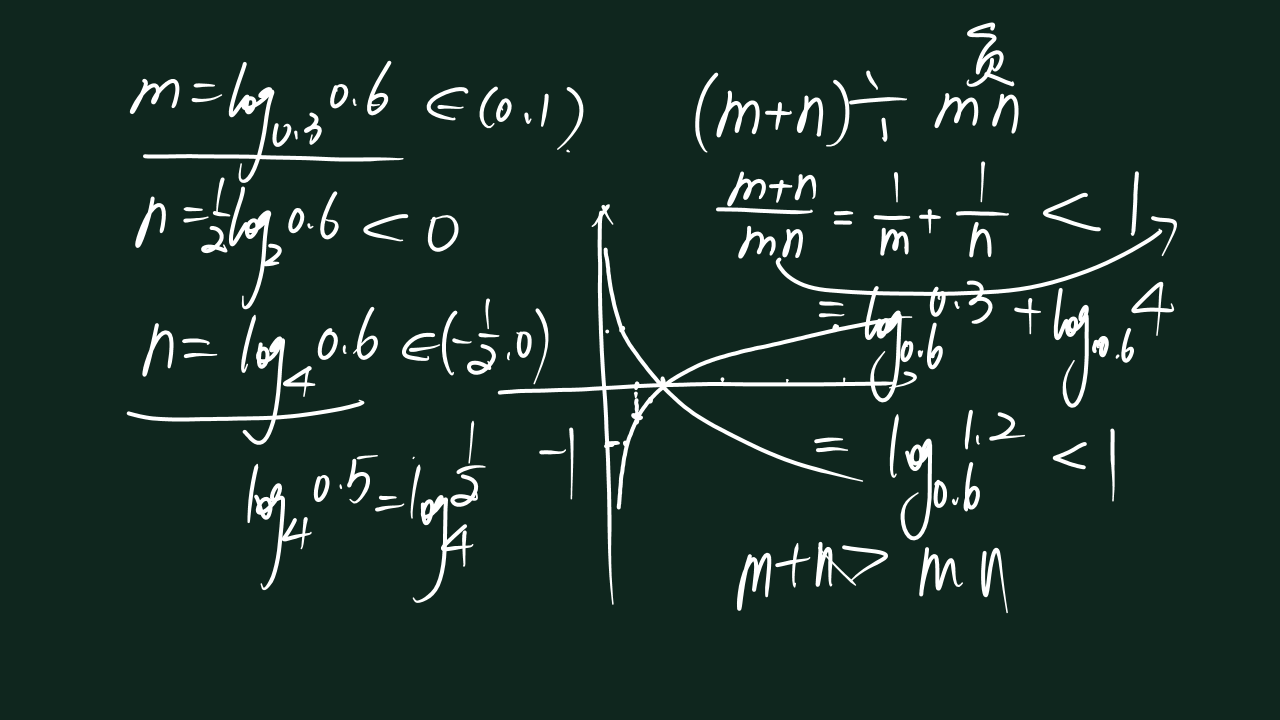 m=log_{0.3}0.6 ∈(0.1)
n=\frac{1}{2}log_{2}0.6<0
n=log_{4}0.6∈(-\frac{1}{2}.0)
log_{4}0.5=log_{4}\frac{1}{2}
-1
负
(m+n)÷1 mn
\frac{m+n}{mn}=\frac{1}{m}+\frac{1}{n}<1
=log_{0.6}0.3+log_{0.6}4
=log_{0.6}1.2<1
m+n>mn